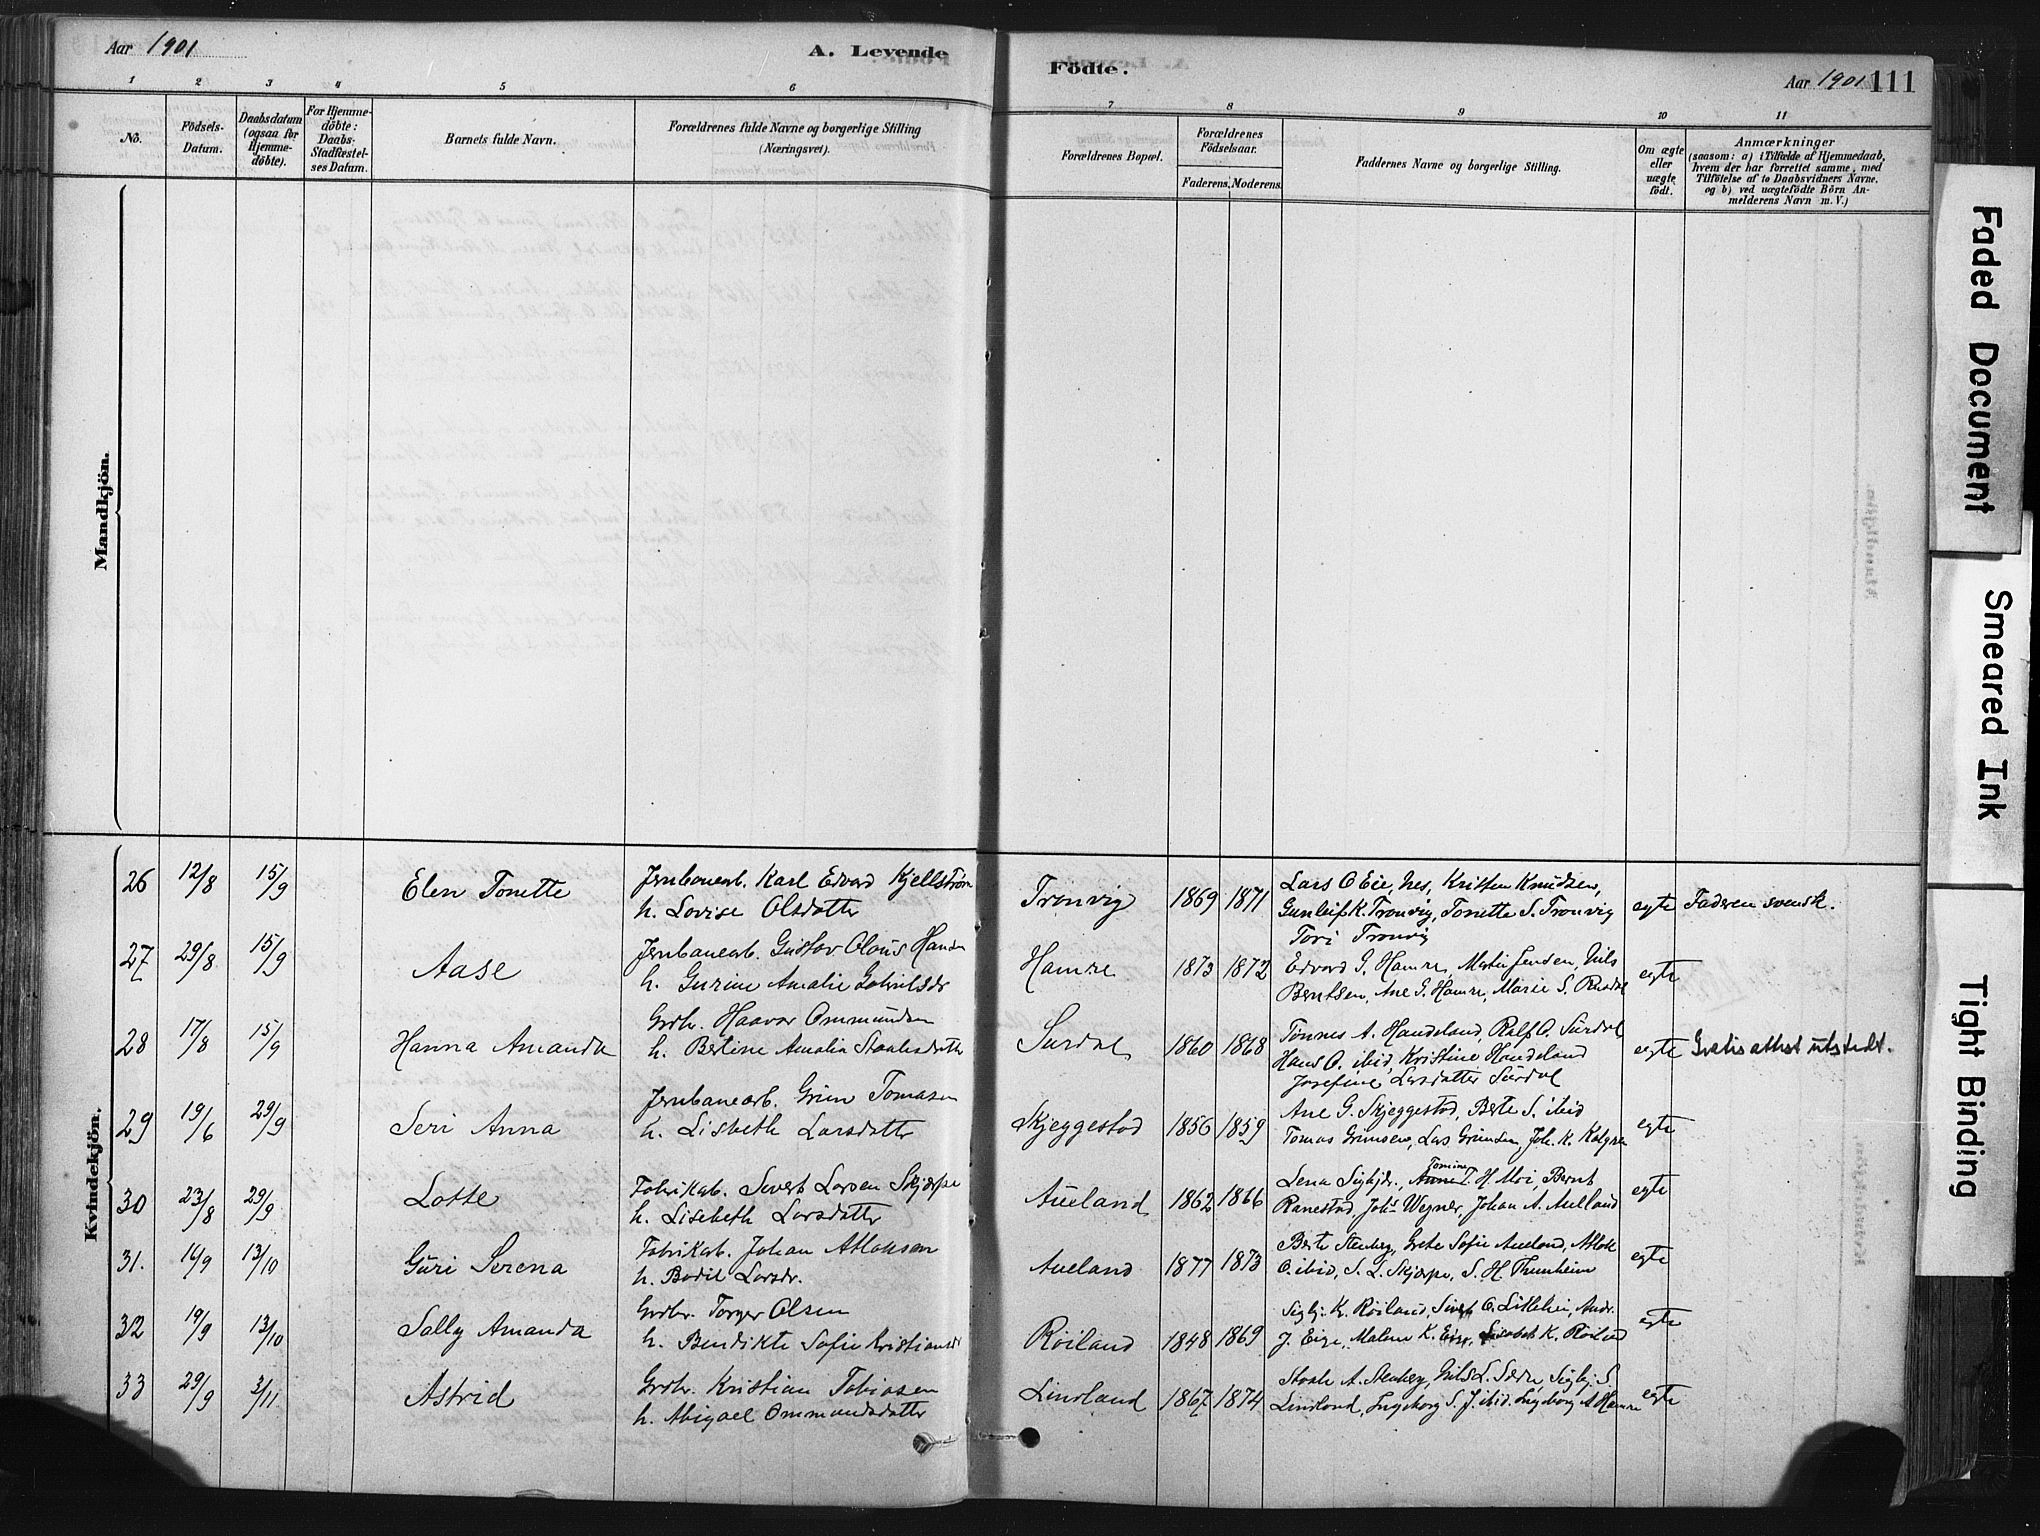 Aar 1901
A. Levende
Födte.
Aar 1901
111
1 2 3 4 5 6 7 8 9 10 11
No.
Födsels-
Datum.
Daabsdatum
(ogsaa for
Hjemme-
döbte).
For Hjemme-
döbte:
Daabs-
Stadfæstel-
ses Datum.
Barnets fulde Navn.
Forældrenes fulde Navne og borgerlige Stilling
(Næringsvei).
Forældrenes Bopæl.
Forældrenes
Födselsaar.
Faderens. Moderens.
Faddernes Navne og borgerlige Stilling.
Om ægte
eller
uægte
født.
Anmærkninger
(saasom: a) i Tilfælde af Hjemmedaab,
hvem der har forrettet samme, med
Tilföielse af to Daabsvidners Navne,
og b) ved uægtefödte Börn An-
melderens Navn m. V.)
Mandkjön.
Kvindekjön.
26 12/8 15/9 Elen Tonette
Jernbanearb. Karl Edvard Kjellstrøm
h. Lovise Olsdatter
Tronvig 1869 1871
Lars O Eie, Nes, Kristen Knudsen,
Gunleif K. Tronvig, Tonette S. Tronvig
Tori Tronvig
egte Faderen svensk.
27 29/8 15/9 Aase
Jernbanearb. Gustav Olaus Hansen
h. Gurine Amalie
Hamre 1873 1872
Edvard G. Hamre, Martin Jensen, Nils
Berntsen, Ane G. Hamre, Marie S.
egte
28 17/8 15/9 Hanna Amanda
Grdbr. Haavar Ommundsen
h. Bertine Amalia
Surdal 1860 1868
Tønnes A. Haudeland, Ralf O. Surdal
Hans O. ibid, Kristine Haudeland
Josefine Larsdatter Surdal
egte Gratis attest utstedt.
29 19/6 29/9 Seri Anna
Jernbanearb. Grim Tomasen
h. Lisbeth Larsdatter
Skjeggestad 1856 1859
Ane G. Skjeggestad, Berte S. ibid
Tomas Grimsen, Lars Grimsen, Joh. K.
egte
30 23/8 29/9 Lotte
Fabrikarb. Sivert Larsen Skjærpe
h. Lisebeth Larsdatter
Aueland 1862 1866
Lena Sigbjdr., Tomine T. H. Moi, Bernt
Ranestad, Johs Wegner, Johan A. Aueland
egte
31. 14/9 13/10 Guri Serena
Fabrikarb. Johan Atlaksen
h. Bodil Larsdr.
Aueland 1877 1873
Berte Stenberg, Grete Sofie Aueland, Atlak
O. ibid, S. L. Skjærpe, S. H. Trumheim
egte
32 19/9 13/10 Sally Amanda
Grdbr. Torger Olsen
h. Bendikte Sofie Kristiansdr
Røiland 1848 1869
Sigbj. K. Røiland, Sivert O. Andr.
J. Eige, Malene K. Eige, K. Røiland
egte
33 29/9 3/11 Astrid
Grdbr. Kristian Tobiasen
h. Abigael Ommundsdatter
Lindland 1867 1874
Staale A. Stenberg, Nils L. Sigbj. S.
Lindland, Ingeborg S. J. ibid. Ingeborg A Hamre
egte
Faded Document
Smeared Ink
Tight Binding